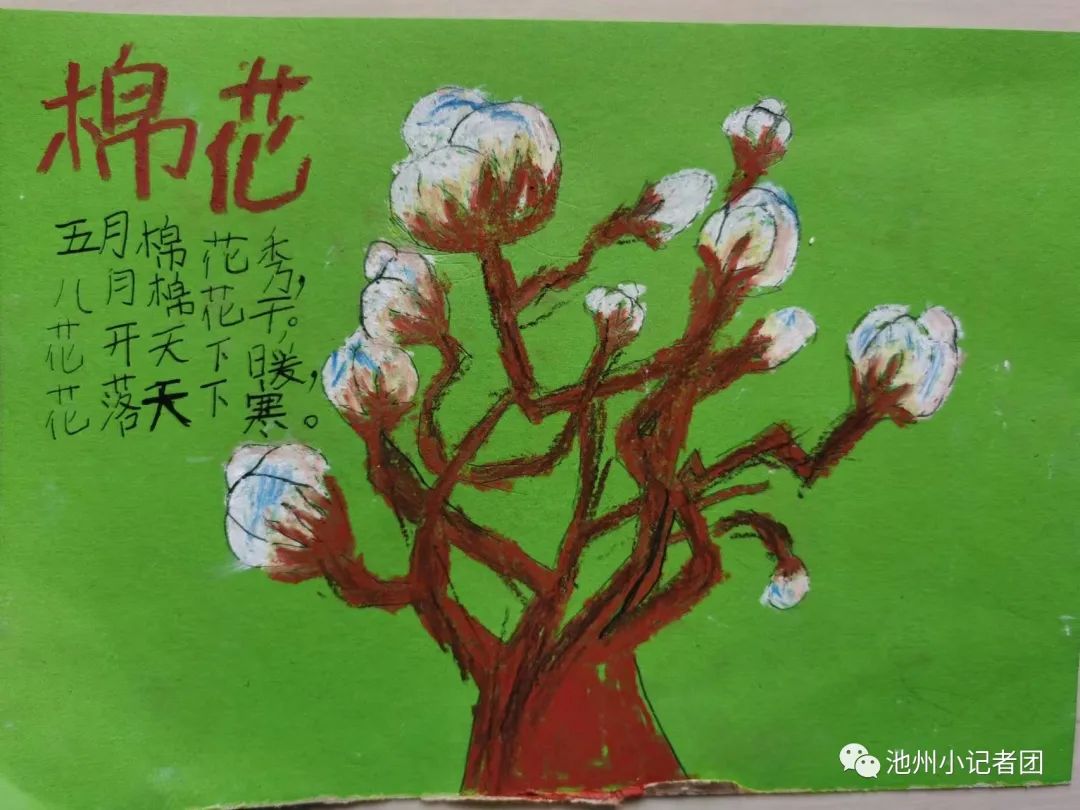 棉花
五月棉花秀,
八月棉花干。
花开天下暖,
花落天下寒。
池州小记者团